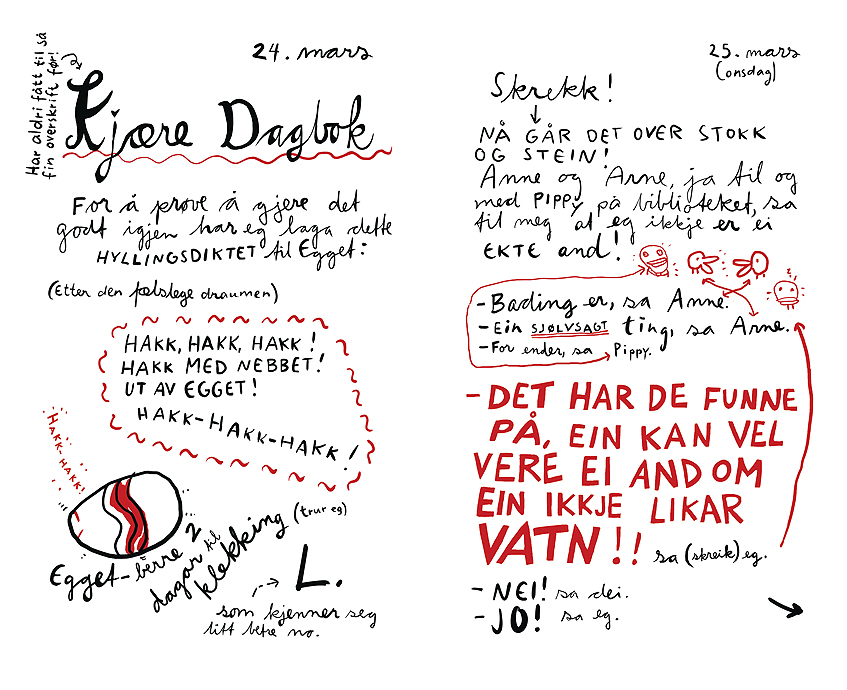 24. mars
Har aldri fått til så
fin overskrift før!
Kjære Dagbok
For å prøve å gjere det
godt igjen har eg laga dette
HYLLINGSDIKTET til Egget:
(Etter den følslege draumen)
HAKK, HAKK, HAKK!
HAKK MED NEBBET!
UT AV EGGET!
HAKK-HAKK-HAKK!
HAKK-HAKK!
Egget - berre 2
dagar til
klekking (trur eg)
L.
som kjenner seg
litt betre no.
25. mars
(onsdag)
Skrekk!
NÅ GÅR DET OVER STOKK
OG STEIN!
Anne og Arne, ja til og
med PIPPY på biblioteket, sa
til meg at eg ikkje er ei
EKTE and!
- Bading er, sa Anne.
- Ein SJØLVSAGT ting, sa Arne.
- For ender, sa Pippy.
- DET HAR DE FUNNE
PÅ, EIN KAN VEL
VERE EI AND OM
EIN IKKJE LIKAR
VATN!! sa (skreik) eg.
- NEI! sa dei.
- JO! sa eg.